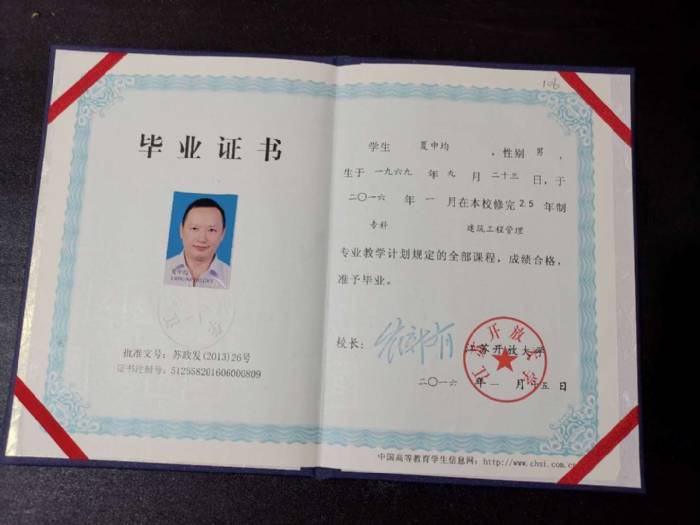 106
毕业证书
学生 夏中均 ，性别 男 ，
生于 一九六九 年 九 月 二十三 日，于
二〇一六 年 一 月在本校修完 2.5 年制
专科 建筑工程管理
专业教学计划规定的全部课程，成绩合格，
准予毕业。
夏中均
校长：
江苏开放大学
二〇一六 年 一 月 十五 日
批准文号：苏政发(2013)26号
证书注册号：512558201606000809
中国高等教育学生信息网：http://www.chsi.com.cn